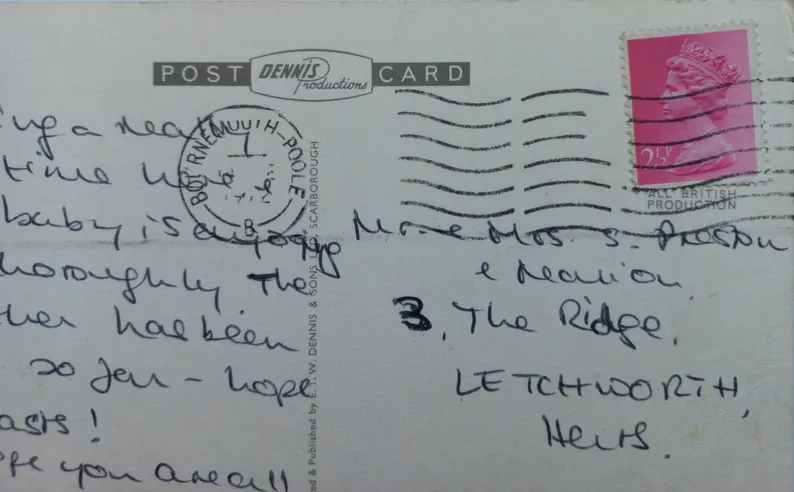 POST DENNIS Productions CARD
BOURNEMOUTH-POOLE
B
2½P
ALL BRITISH
PRODUCTION
ing a real
time
baby is enjoying
horoughly. The
ther has been
so far - hope
asts!
you are all
ed & Published by E.T.W. DENNIS & SONS LTD., SCARBOROUGH
Mr. & Mrs. S. Preston
&
3, The Ridge,
LETCHWORTH,
Herts.